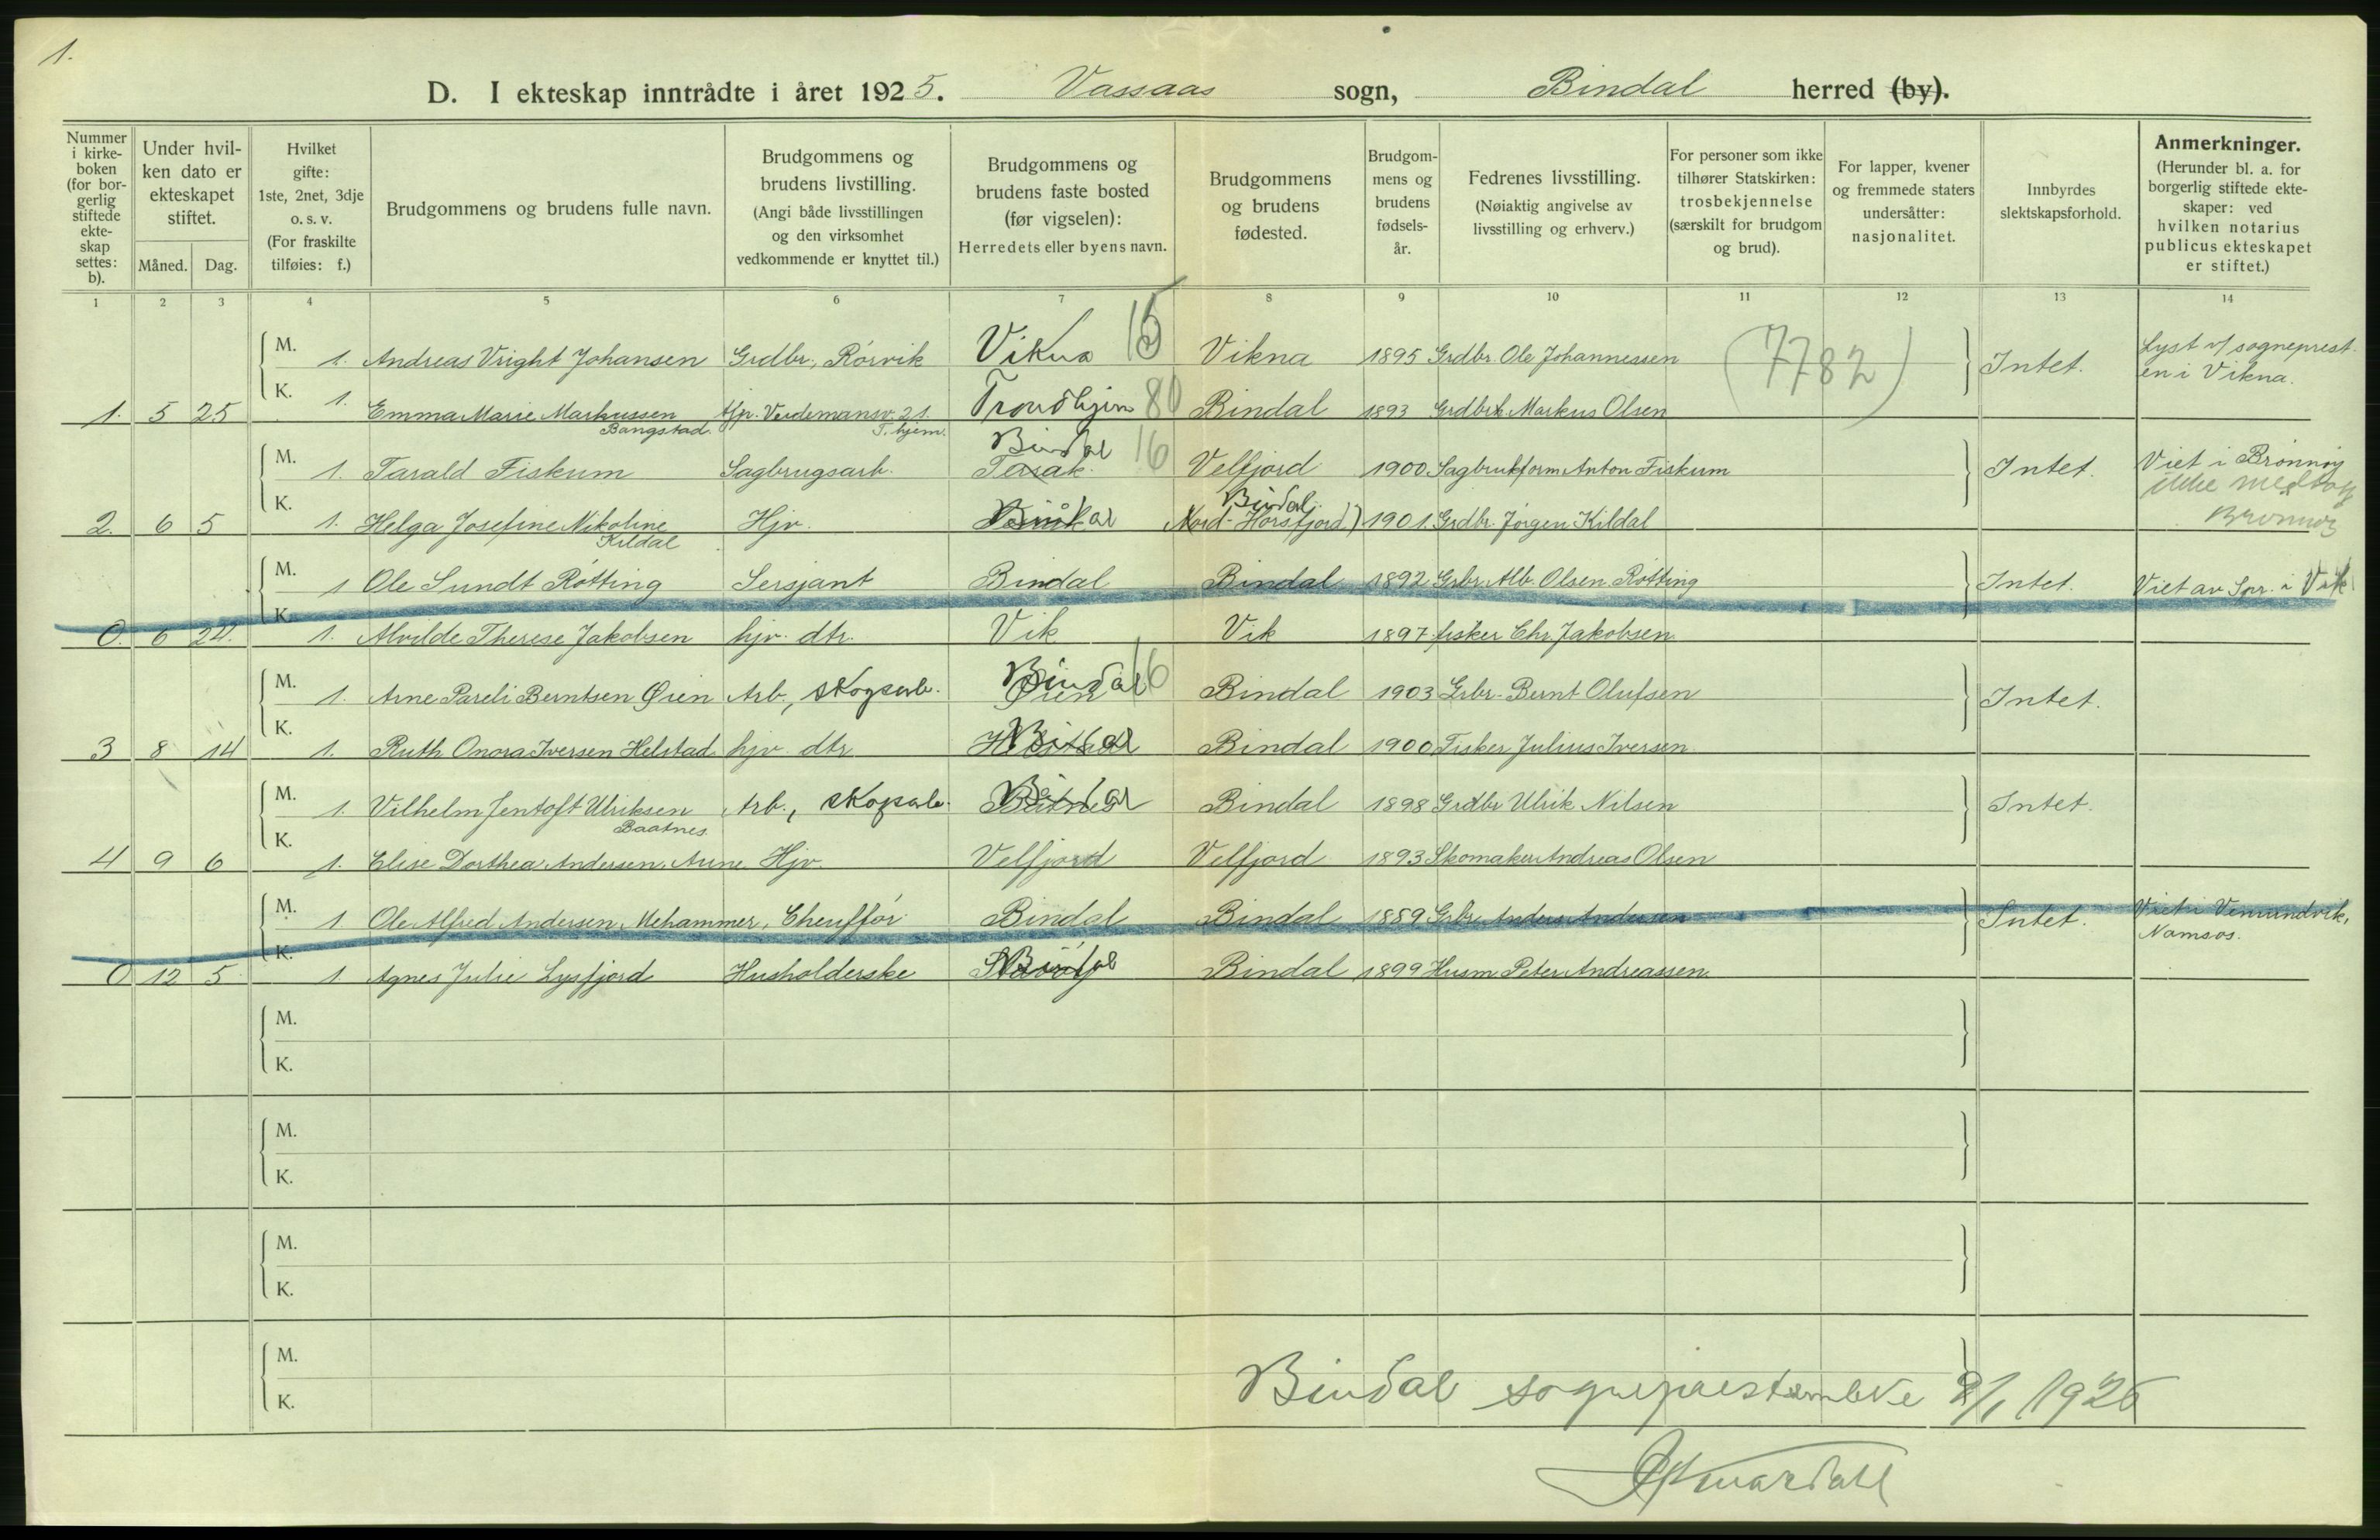 1.
D. I ekteskap inntrådte i året 1925. Vassaas sogn, Bindal herred (by).
Nummer i kirke-boken (for bor-gerlig stiftede ekte-skap settes: b).
Under hvil-ken dato er ekteskapet stiftet.
Måned. Dag.
Hvilket gifte: 1ste, 2net, 3dje o. s. v. (For fraskilte tilføies: f.)
Brudgommens og brudens fulle navn.
Brudgommens og brudens livstilling. (Angi både livsstillingen og den virksomhet vedkommende er knyttet til.)
Brudgommens og brudens faste bosted (før vigselen): Herredets eller byens navn.
Brudgommens og brudens fødested.
Brudgom-mens og brudens fødsels-år.
Fedrenes livsstilling. (Nøiaktig angivelse av livsstilling og erhverv.)
For personer som ikke tilhører Statskirken: trosbekjennelse (særskilt for brudgom og brud).
For lapper, kvener og fremmede staters undersåtter: nasjonalitet.
Innbyrdes slektskapsforhold.
Anmerkninger. (Herunder bl. a. for borgerlig stiftede ekte-skaper: ved hvilken notarius publicus ekteskapet er stiftet.)
1 2 3 4 5 6 7 8 9 10 11 12 13 14
M. 1. Andreas Vright Johansen Grdbr., Rørvik Vikna 15 Vikna 1895 Grdbr. Ole Johannessen (7782) Intet. Lyst v/ sogneprest-en i Vikna.
1. 5 25 K. 1. Emma Marie Markussen Bangstad. tjp. 21. T.hjem. Trondhjem 80 Bindal 1893 Grdbr. Markus Olsen
M. 1. Tarald Fiskum Sagbrugsarb. Terak. Bindal 16 Velfjord 1900 Sagbrukform Anton Fiskum Intet. Viet i Brønnøy ikke Brønnøy
2. 6 5 K. 1. Helga Josefine Nikoline Kildal Hjv. Bindal Bindal (Nord-Horsfjord) 1901 Grdbr. Jørgen Kildal
M. 1 Ole Sundt Røtting Sersjant Bindal Bindal 1892 Grbr. Alb. Olsen Røtting Intet. Viet av Spr. i Vik
0. 6 24. K. 1. Alvilde Therese Jakobsen hjv. dtr. Vik Vik 1897 fisker Chr. Jakobsen
M. 1. Arne Pareli Berntsen Øien Arb., skogsarb. Øien Bindal 16 Bindal 1903 Grbr. Bernt Olufsen Intet.
3 8 14 K. 1. Ruth Onora Iversen Helstad hjv. dtr Bindal Bindal 1900 Fisker Julius Iversen
M. 1. Vilhelm Jentoft Ulriksen Baatnes. Arb., skogsarb. Bindal Bindal 1898 Grdbr Ulrik Nilsen Intet.
4 9 6 K. 1. Elise Dorthea Andersen, Aune Hjv. Velfjord Velfjord 1893 Skomaker Andreas Olsen
M. 1 Ole Alfred Andersen, Mehammer, Cheufför Bindal Bindal 1889 Grbr. Anders Andersen Intet. Viet i Vemundvik, Namsos.
0 12 5 K. 1 Agnes Julie Lysfjord Husholderske Bindal Bindal 1899 Husm Peter Andreassen
M.
K.
M.
K.
M.
K.
M.
K.
Bindal sogneprestembede 2/1 1926